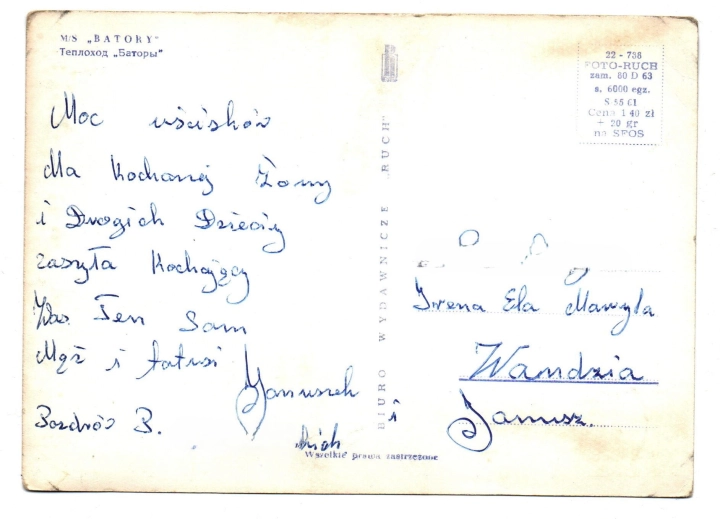 M/S „BATORY"
Теплоход „Баторы"
22 - 738
FOTO-RUCH
zam. 80 D 63
s. 6000 egz.
S 55 61
Cena 1.40 zł
+ 20 gr
na SFOS
BIURO WYDAWNICZE „RUCH"
Moc uścisków
dla Kochanej Żony
i Drogich Dzieci
zasyła Kochający
Was Ten Sam
Mąż i tatuś
Januszek
Pozdrów B.
Irena Ela Maryla
Wandzia
i Janusz.
Wszelkie prawa zastrzeżone